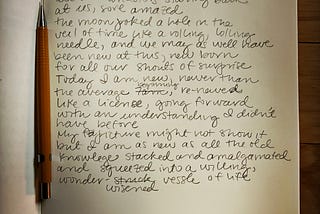 at us, sore amazed
the moon poked a hole in the
veil of time like a rolling, lolling
needle, and we may as well have
been new at this, new born
for all our shouts of surprise
Today I am new, newer than
the average seemingly re-newed
like a license, going forward
with an understanding I didn't
have before
My picture might not show it
but I am as new as all the old
knowledge stacked and amalgamated
and squeezed into a willing,
wonder-struck vessle of life
wisened